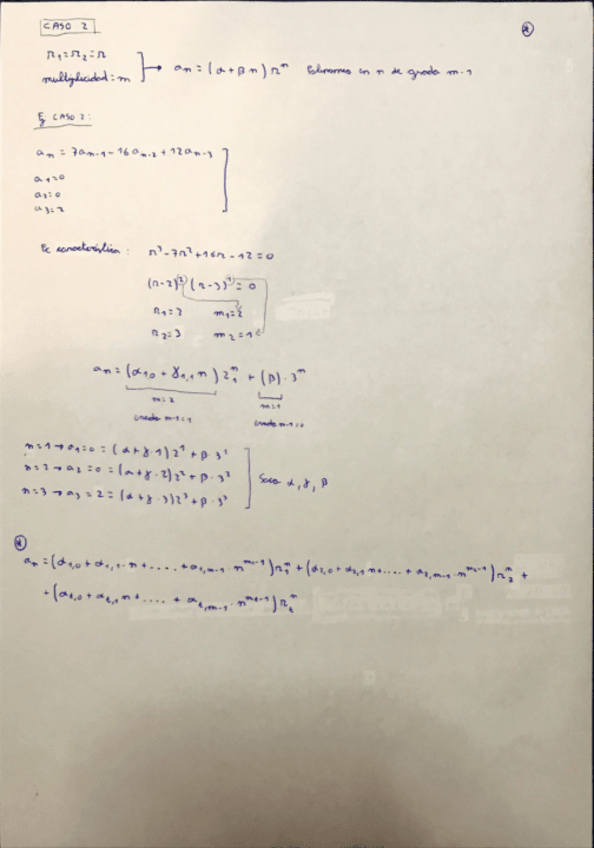 CASO 2
*
r₁=r₂=r
multiplicidad: m
aₙ = (α+βn) rⁿ Polinomio en n de grado m-1
Ej CASO 2:
aₙ = 7aₙ₋₁ - 16aₙ₋₂ + 12aₙ₋₃
a₁=0
a₂=0
a₃=2
Ec característica: r³-7r²+16r-12=0
(r-2)² (r-3)¹ = 0
r₁=2 m₁=2
r₂=3 m₂=1
aₙ = (α₁,₀ + γ₁,₁ n) 2ⁿ + (β) · 3ⁿ
m=2 m=1
grado m-1=1 grado m-1=0
n=1 → a₁=0 = (α+γ·1)2¹ + β·3¹
n=2 → a₂=0 = (α+γ·2)2² + β·3²
n=3 → a₃=2 = (α+γ·3)2³ + β·3³
Saco α, γ, β
*
aₙ = (α₁,₀ + α₁,₁·n + .... + α₁,m-1 · n^(m₁-1)) r₁ⁿ + (α₂,₀ + α₂,₁ n + .... + α₂,m-1 · n^(m₂-1)) r₂ⁿ +
+ (αt,₀ + αt,₁ n + .... + αt,m-1 · n^(mt-1)) rtⁿ